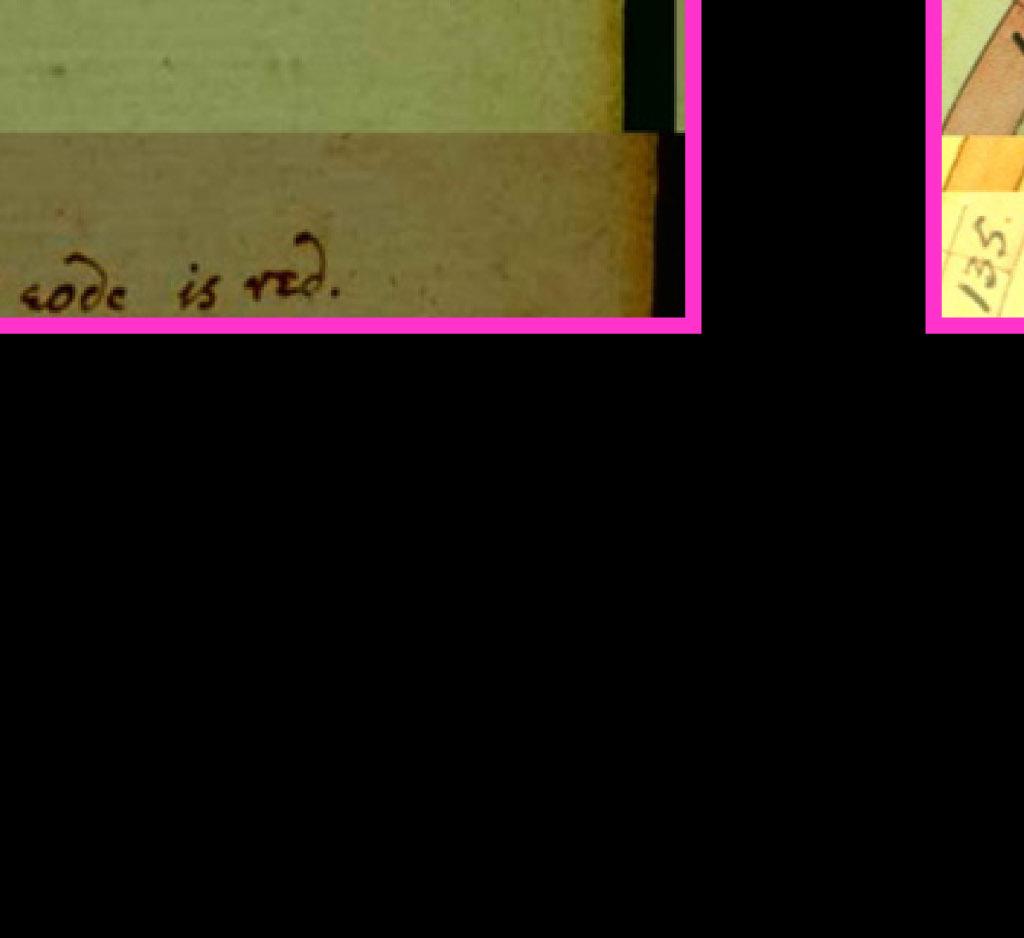 code is red.
135.